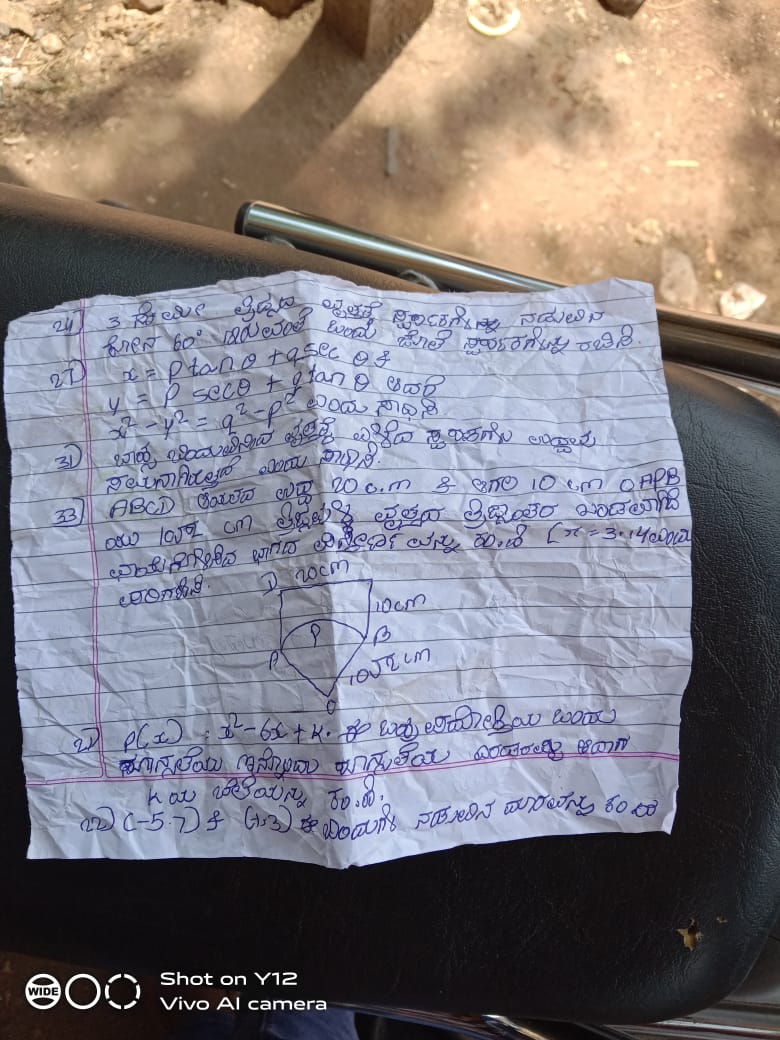 24) 3 ಸೆ.ಮೀ ತ್ರಿಜ್ಯದ ವೃತ್ತಕ್ಕೆ ಸ್ಪರ್ಶಕಗಳನ್ನು ನಡುವಿನ
ಕೋನ 60° ಇರುವಂತೆ ಒಂದು ಜೊತೆ ಸ್ಪರ್ಶಕಗಳನ್ನು ರಚಿಸಿ.
27) x = P tan θ + q sec θ &
y = P secθ + q tan θ ಆದರೆ
x² - y² = q² - p² ಎಂದು ಸಾಧಿಸಿ
31) ಬಾಹ್ಯ ಬಿಂದುವಿನಿಂದ ವೃತ್ತಕ್ಕೆ ಎಳೆದ ಸ್ಪರ್ಶಕಗಳ ಉದ್ದವು
ಸಮನಾಗಿರುತ್ತದೆ ಎಂದು ಸಾಧಿಸಿ.
33) ABCD ಆಯತದ ಉದ್ದ 20 c.m & ಅಗಲ 10 cm OAPB
ಯು 10√2 cm ತ್ರಿಜ್ಯವುಳ್ಳ ವೃತ್ತದ ತ್ರಿಜ್ಯಾಂತರ ಖಂಡವಾಗಿದೆ
ಭಾಗದ ವಿಸ್ತೀರ್ಣವನ್ನು ಕಂ.ಹಿ [π = 3.14 ಎಂದು
D 20cm
10cm
P
A
B
10√2 cm
O
21) P(x) = x² - 6x + K. ಈ ಬಹುಪದೋಕ್ತಿಯ ಒಂದು
ಶೂನ್ಯತೆಯು ಇನ್ನೊಂದು ಶೂನ್ಯತೆಯ ಆದಾಗ
K ಯ ಬೆಲೆಯನ್ನು ಕಂ.ಹಿ.
22) (-5.7) & ಈ ಬಿಂದುಗಳ ನಡುವಿನ ದೂರವನ್ನು ಕಂ.ಹಿ
WIDE
Shot on Y12
Vivo AI camera